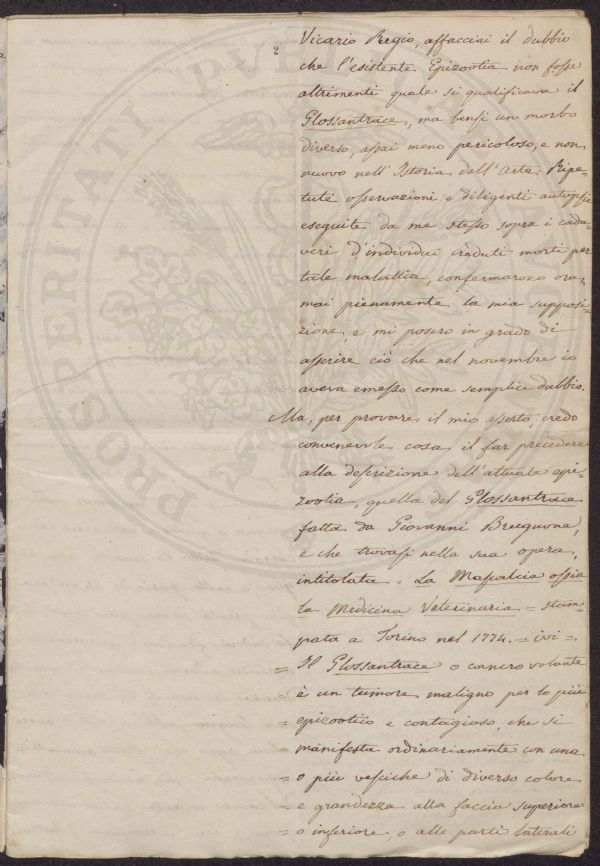 2
Vicario Regio, affacciai il dubbio
che l'esistente Epizootia non fosse
altrimenti quale si qualificava il
Glossantrace, ma bensì un morbo
diverso, assai meno pericoloso, e non
nuovo nell'Istoria dell'Arte. Ripe-
tute osservazioni e diligenti autopsie
eseguite da me stesso sopra i cada-
veri d'individui creduti morti per
tale malattia, confermarono ora-
mai pienamente la mia supposi-
zione, e mi posero in grado di
asserire ciò che nel novembre io
aveva emesso come semplice dubbio.
Ma, per provare il mio asserto, credo
convenevole cosa il far precedere
alla descrizione dell'attuale epi-
zootia, quella del Glossantrace
fatta da Giovanni Brugnone,
e che trovasi nella sua opera,
intitolata = La Mascalcia ossia
la Medicina Veterinaria = stam-
pata a Torino nel 1774. = ivi =.
= Il Glossantrace o cancro volante
= è un tumore maligno per lo più
= epizootico e contagioso, che si
= manifesta ordinariamente con una
= o più vesciche di diverso colore
= e grandezza alla faccia superiore
= o inferiore, o alle parti laterali
PROSPERITATI PVBLICAE